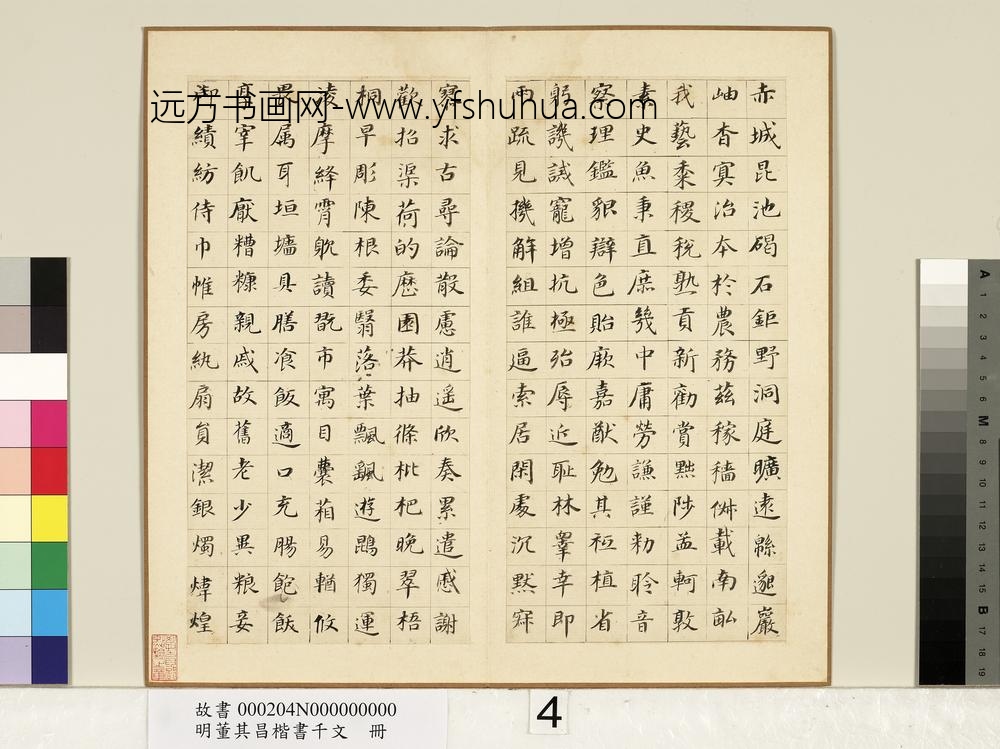 远方书画网-www.yfshuhua.com
赤城昆池碣石鉅野洞庭曠遠緜邈巖
岫杳冥治本於農務茲稼穡俶載南畝
我藝黍稷稅熟貢新勸賞黜陟孟軻敦
素史魚秉直庶幾中庸勞謙謹勅聆音
察理鑑貌辯色貽厥嘉猷勉其祗植省
躬譏誡寵增抗極殆辱近耻林皋幸即
兩疏見機解組誰逼索居閑處沉默寂
寥求古尋論散慮逍遥欣奏累遣慼謝
歡招渠荷的歷園莽抽條枇杷晚翠梧
桐早彫陳根委翳落葉飄颻遊鵾獨運
凌摩絳霄躭讀翫市寓目囊箱易輶攸
畏属耳垣墻具膳飡飯適口充腸飽飫
亨宰飢厭糟糠親戚故舊老少異粮妾
御績紡侍巾帷房紈扇員潔銀燭煒煌
故書 000204N000000000
明董其昌楷書千文 冊
4
A 1 2 3 4 5 6 M 8 9 10 11 12 13 14 15 B 17 18 19